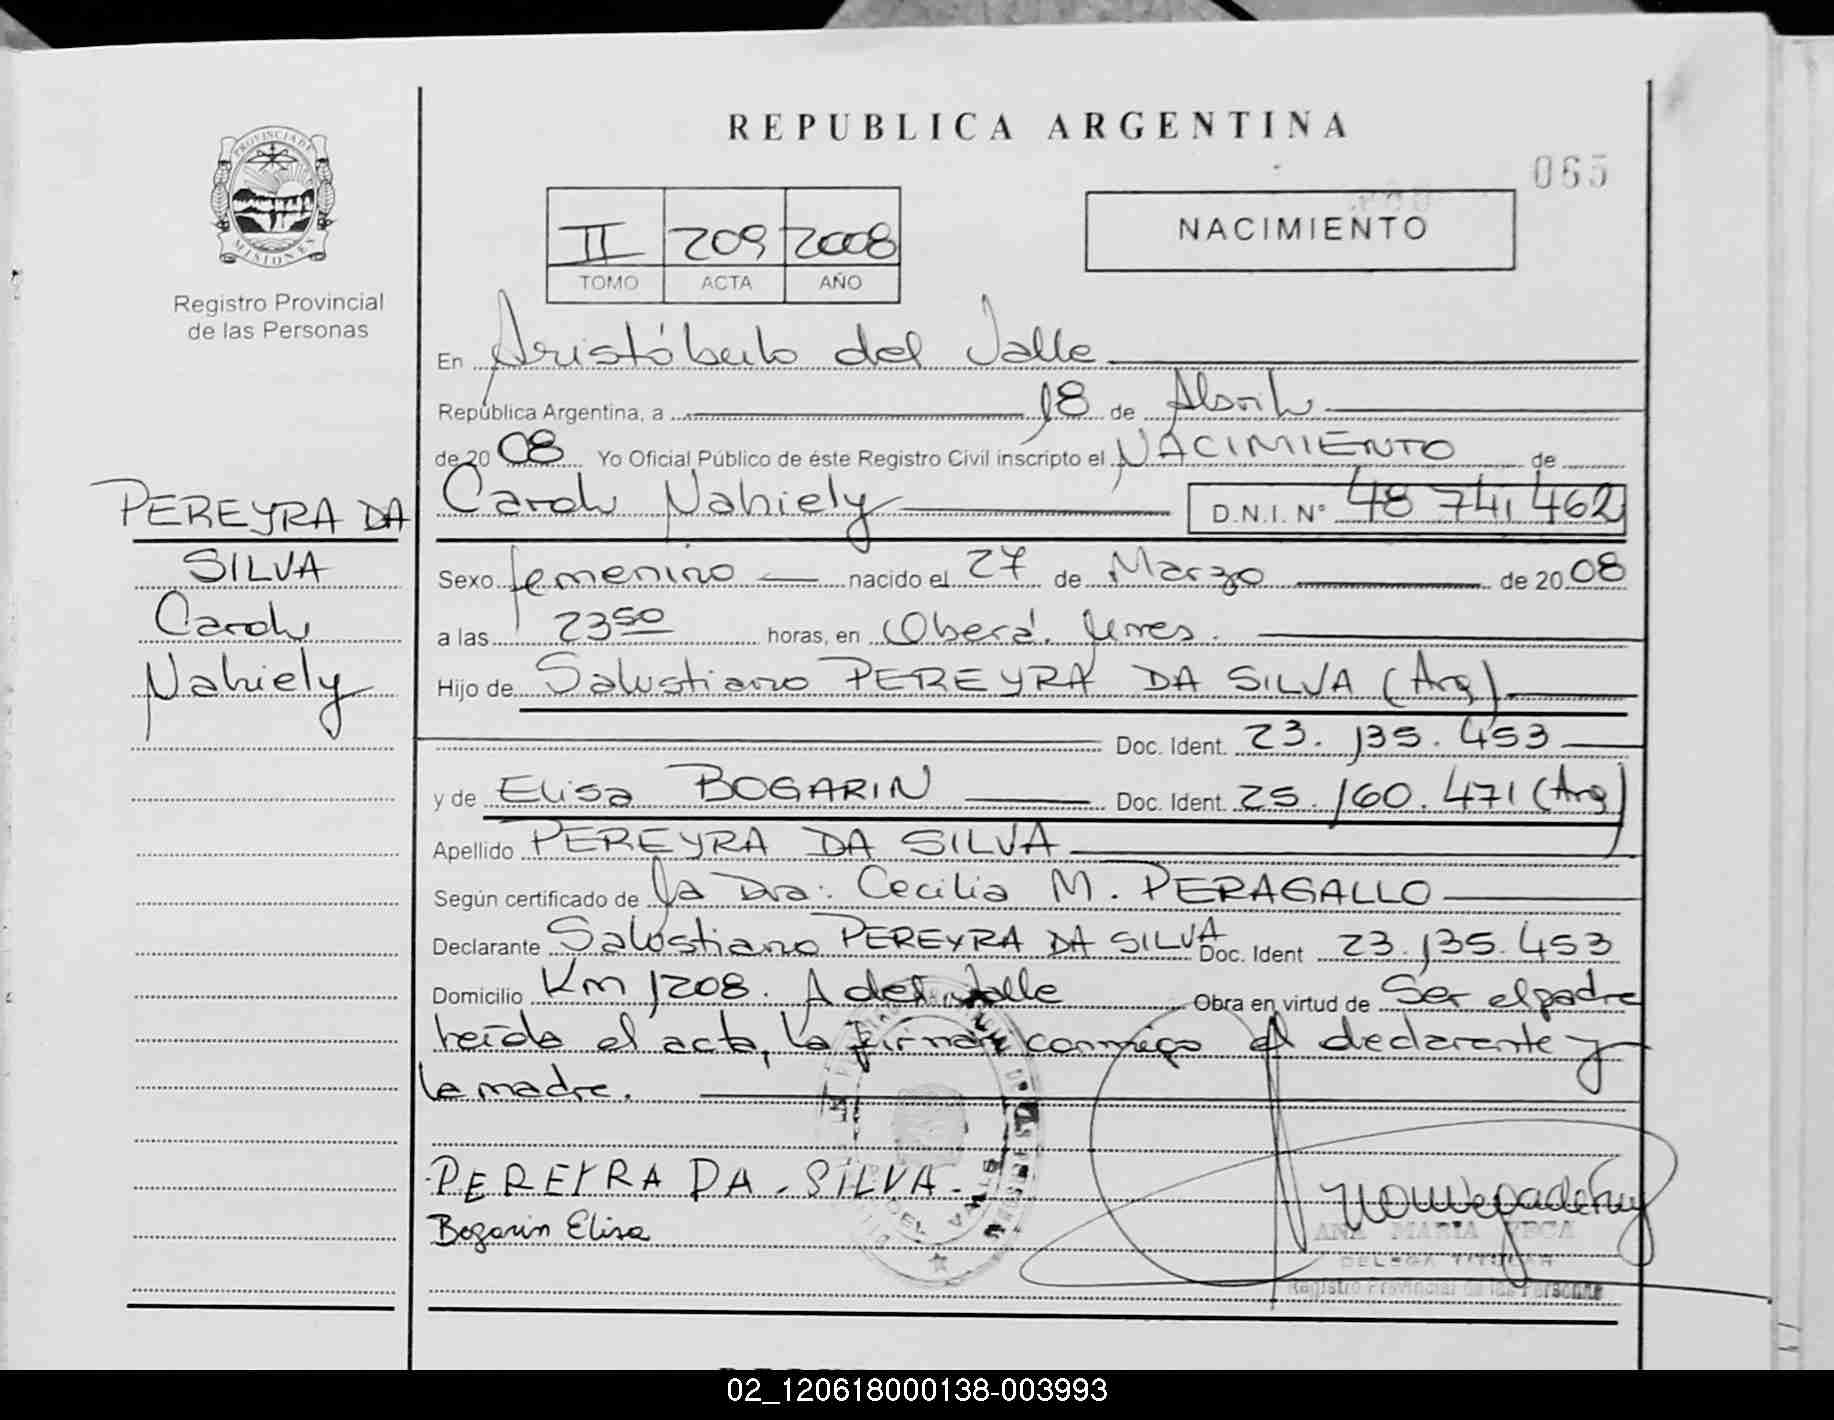 REPUBLICA ARGENTINA
065
PROVINCIA DE
MISIONES
Registro Provincial
de las Personas
II 209 2008
TOMO ACTA AÑO
NACIMIENTO
En Aristóbulo del Valle
República Argentina, a 18 de Abril
de 20 08 Yo Oficial Público de éste Registro Civil inscripto el NACIMIENTO de
Nahiely D.N.I. N° 48 741 462
PEREYRA DA
SILVA
Nahiely
Sexo femenino nacido el 27 de Marzo de 20 08
a las 23 50 horas, en Oberá.
Hijo de Salustiano PEREYRA DA SILVA (Arg)
Doc. Ident. 23.135.453
y de Elisa BOGARIN Doc. Ident. 25.160.471 (Arg)
Apellido PEREYRA DA SILVA
Según certificado de la Dra: Cecilia M. PERAGALLO
Declarante Salustiano PEREYRA DA SILVA Doc. Ident 23.135.453
Domicilio Km 1208. A del Valle Obra en virtud de Ser el padre
leída el acta, la firman conmigo el declarante y
la madre.
PEREYRA DA - SILVA -
Bogarin Elisa
DEL VALLE
ANA MARIA
DELEGA TITULAR
Registro Provincial de las Personas
02_120618000138-003993